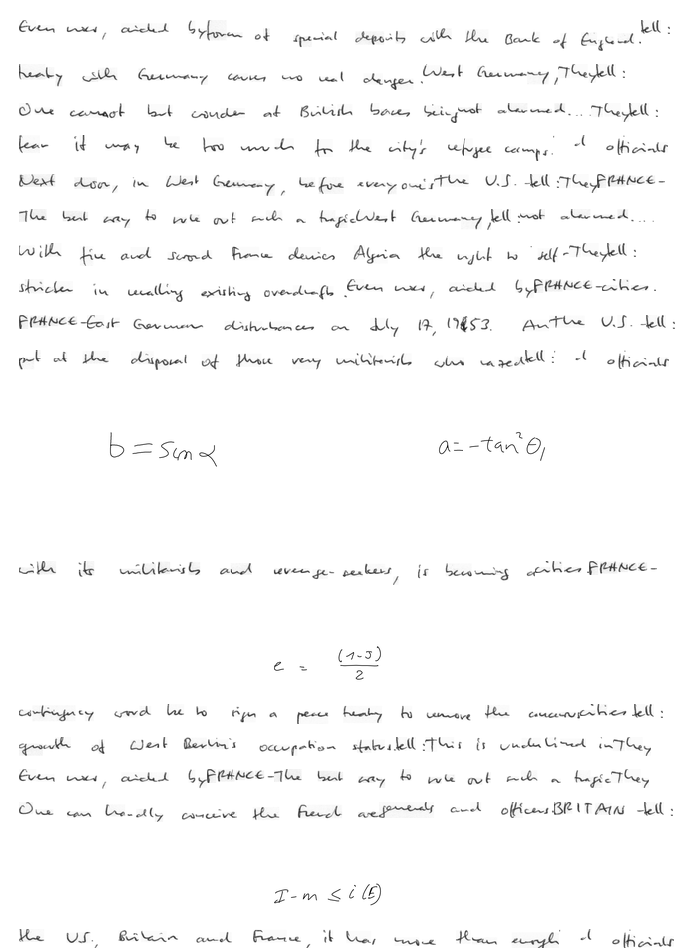 Even now, aided by form of special deposits with the Bank of England. tell:
treaty with Germany causes no real danger. West Germany, They tell:
One cannot but wonder at British bases being not alarmed... They tell:
fear it may be too much for the city's refugee camps. d officials
Next door, in West Germany, before everyone's The U.S. tell: They FRANCE-
The best way to rule out such a tragic West Germany, tell: not alarmed....
With fire and sword France denies Algeria the right to self- They tell:
stricter in recalling existing overdrafts. Even now, aided by FRANCE- cities.
FRANCE- East German disturbances on July 17, 1953. An The U.S. tell:
put at the disposal of those very militarists who razed tell: d officials
b = sin α
a = -tan² θ₁
with its militarists and revenge-seekers, is becoming cities FRANCE-
e = (1-J)/2
contingency word be to sign a peace treaty to remove the cities tell:
growth of West Berlin's occupation status. tell: This is underlined in They
Even now, aided by FRANCE- The best way to rule out such a tragic They
One can hardly conceive the French generals and officers BRITAIN tell:
I-m ≤ i(E)
the US., Britain and France, it has more than enough d officials